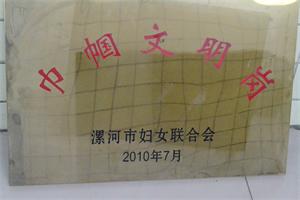 巾帼文明岗
漯河市妇女联合会
2010年7月